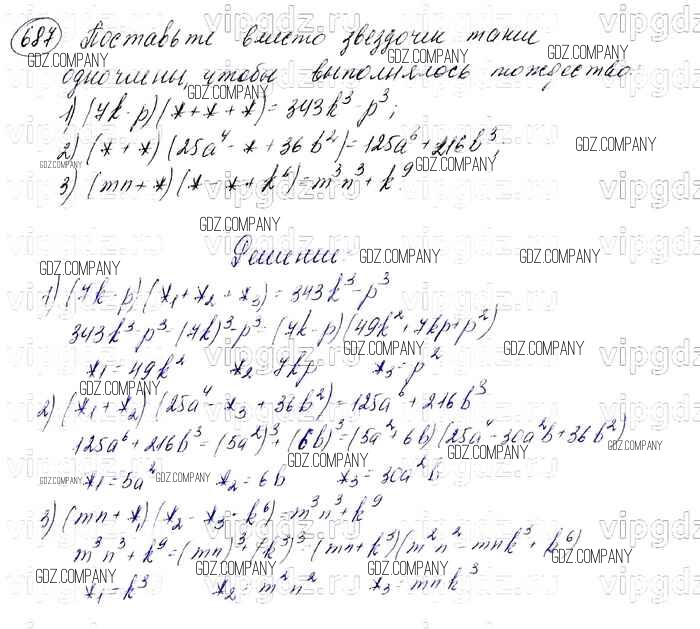 687 Поставьте вместо звездочек такие
одночлены, чтобы выполнялось тождество:
1) (7k - p)(* + * + *) = 343k³ - p³;
2) (* + *)(25a⁴ - * + 36b²) = 125a⁶ + 216b³;
3) (mn + *)(* - * + k⁶) = m³n³ + k⁹.
Решение:
1) (7k - p)(*₁ + *₂ + *₃) = 343k³ - p³
343k³ - p³ = (7k)³ - p³ = (7k - p)(49k² + 7kp + p²)
*₁ = 49k² *₂ = 7kp *₃ = p²
2) (*₁ + *₂)(25a⁴ - *₃ + 36b²) = 125a⁶ + 216b³
125a⁶ + 216b³ = (5a²)³ + (6b)³ = (5a² + 6b)(25a⁴ - 30a²b + 36b²)
*₁ = 5a² *₂ = 6b *₃ = 30a²b
3) (mn + *₁)(*₂ - *₃ + k⁶) = m³n³ + k⁹
m³n³ + k⁹ = (mn)³ + (k³)³ = (mn + k³)(m²n² - mnk³ + k⁶)
*₁ = k³ *₂ = m²n² *₃ = mnk³